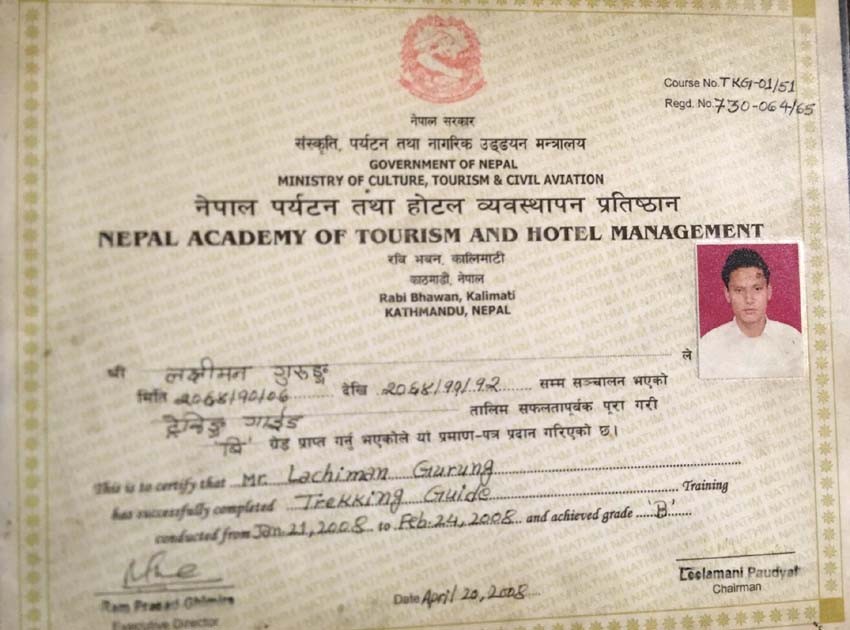 Course No. TKG-01/51
Regd. No. 730-064/65
नेपाल सरकार
संस्कृति, पर्यटन तथा नागरिक उड्डयन मन्त्रालय
GOVERNMENT OF NEPAL
MINISTRY OF CULTURE, TOURISM & CIVIL AVIATION
नेपाल पर्यटन तथा होटल व्यवस्थापन प्रतिष्ठान
NEPAL ACADEMY OF TOURISM AND HOTEL MANAGEMENT
रवि भवन, कालिमाटी
काठमाडौं, नेपाल
Rabi Bhawan, Kalimati
KATHMANDU, NEPAL
श्री लक्षीमन गुरुङ्ग ले
मिति २०६४/१०/०७ देखि २०६४/११/१२ सम्म सञ्चालन भएको
ट्रेकिङ्ग गाईड तालिम सफलतापूर्वक पूरा गरी
'बि' ग्रेड प्राप्त गर्नु भएकोले यो प्रमाण-पत्र प्रदान गरिएको छ।
This is to certify that Mr. Lachiman Gurung
has successfully completed Trekking Guide Training
conducted from Jan. 21, 2008 to Feb. 24, 2008 and achieved grade 'B'
Ram Prasad Ghimire
Executive Director
Date April 20, 2008
Leelamani Paudyal
Chairman